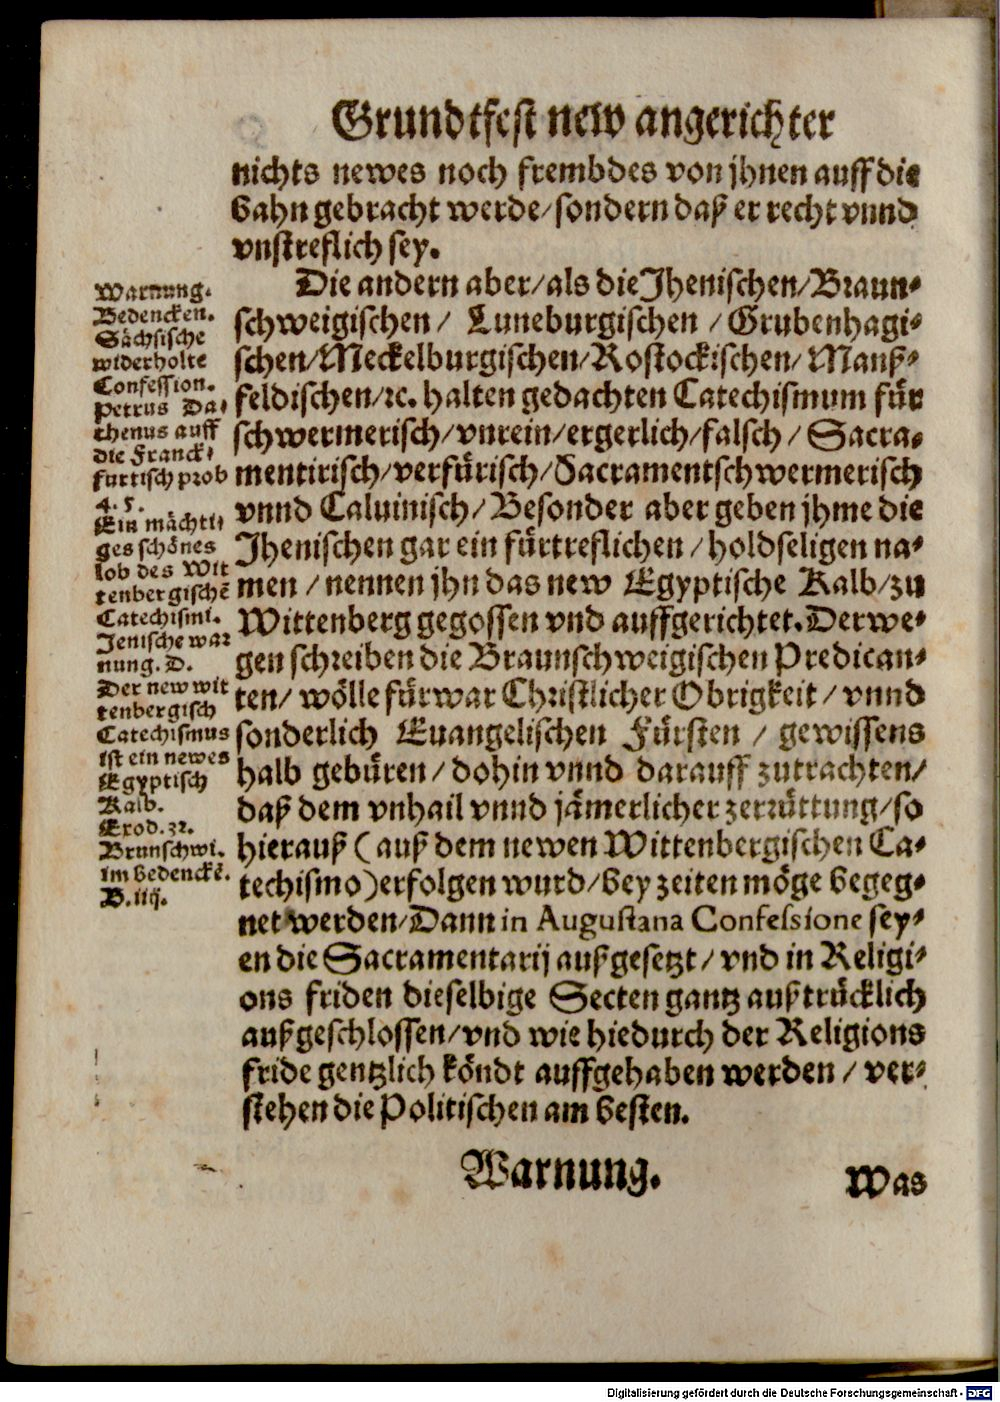 Grundtfest new angerichter
nichts newes noch frembdes von jhnen auff die
bahn gebracht werde/sondern daß er recht vnnd
vnstreflich sey.
Die andern aber/als die Jhenischen/Braun-
schweigischen/ Luneburgischen /Grubenhagi-
schen/Meckelburgischen/Rostockischen/Manß-
feldischen/ꝛc. halten gedachten Catechismum für
schwermerisch/vnrein/ergerlich/falsch/Sacra-
mentirisch/verfürisch/Sacramentschwermerisch
vnnd Caluinisch/Besonder aber geben jhme die
Jhenischen gar ein fürtreflichen/holdseligen na-
men/nennen jhn das new Egyptische Kalb/zu
Wittenberg gegossen vnd auffgerichtet. Derwe-
gen schreiben die Braunschweigischen Predican-
ten/ wölle fürwar Christlicher Obrigkeit/vnnd
sonderlich Euangelischen Fürsten / gewissens
halb gebüren/dohin vnnd darauff zutrachten/
daß dem vnhail vnnd jämerlicher zerrüttung/so
hierauß (auß dem newen Wittenbergischen Ca-
techismo) erfolgen wurd/bey zeiten möge begeg-
net werden/Dann in Augustana Confessione sey-
en die Sacramentarij außgesetzt/vnd in Religi-
ons friden dieselbige Secten gantz außtrücklich
außgeschlossen/vnd wie hiedurch der Religions
fride gentzlich köndt auffgehaben werden/ver-
stehen die Politischen am besten.
Warnung.
Bedencken.
Sächsische
widerholte
Confession.
Petrus Da-
thenus auff
die Franck-
furtisch prob
4. 5.
Ein mächti-
ges schönes
lob des Wit
tenbergischẽ
Catechismi.
Jenische war
nung. D.
Der new wit
tenbergisch
Catechismus
ist ein newes
Egyptisch
Kalb.
Exod. 32.
Brunschwi.
im bedenckẽ.
B. iiij.
Warnung.
Was
Digitalisierung gefördert durch die Deutsche Forschungsgemeinschaft - DFG